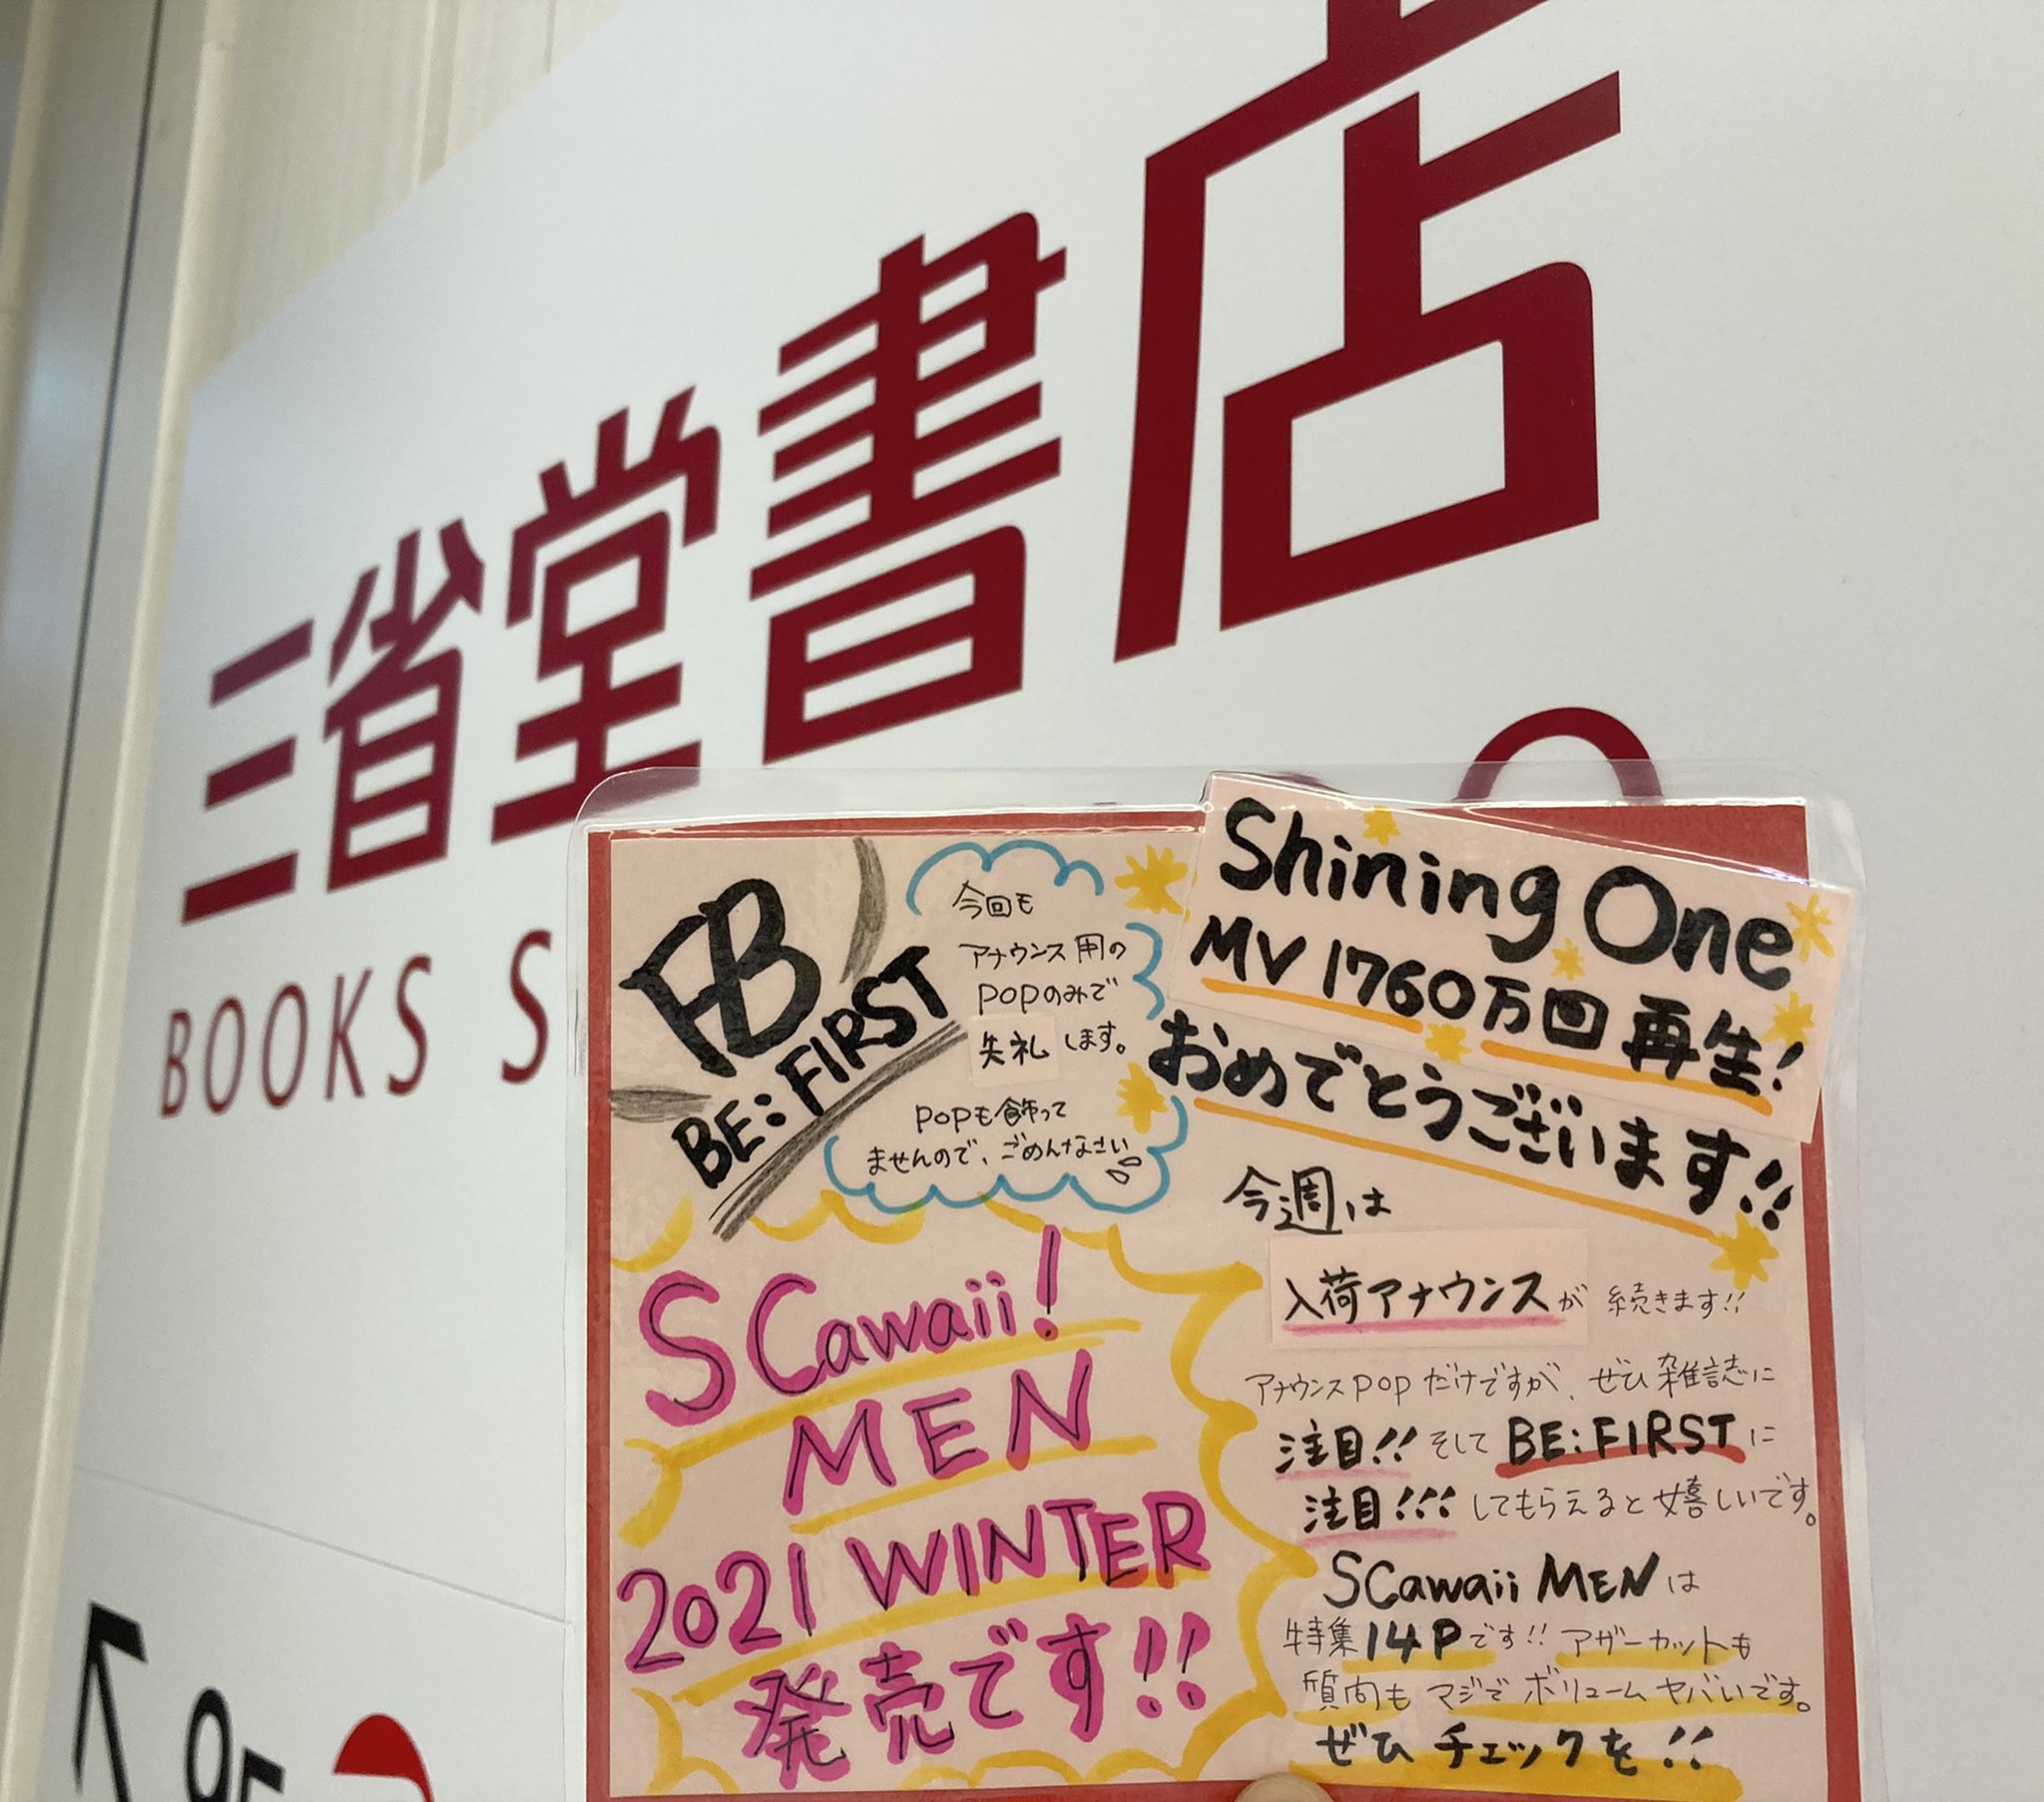 三省堂書店
BOOKS S
BE:FIRST
今回も
アナウンス用の
POPのみで
失礼します。
POPも飾って
ませんので、ごめんなさい
Shining One
MV 1760万回再生!
おめでとうございます!!
SCawaii!
MEN
2021 WINTER
発売です!!
今週は
入荷アナウンスが続きます!!
アナウンスPOPだけですが、ぜひ雑誌に
注目!!そしてBE:FIRSTに
注目!!!してもらえると嬉しいです。
SCawaii MENは
特集14Pです!!アザーカットも
質問もマジでボリュームヤバいです。
ぜひチェックを!!